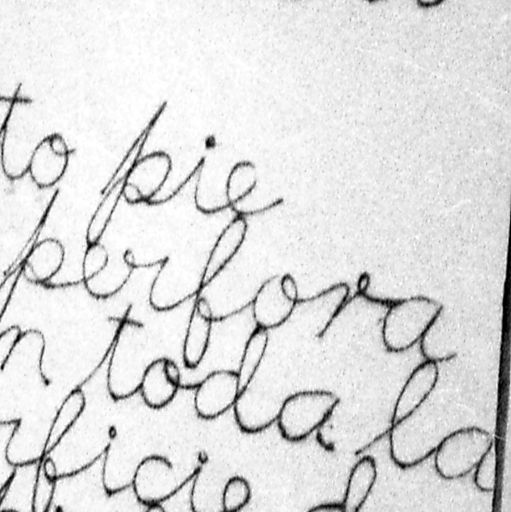 to pie
perfora
n toda la
rficie d